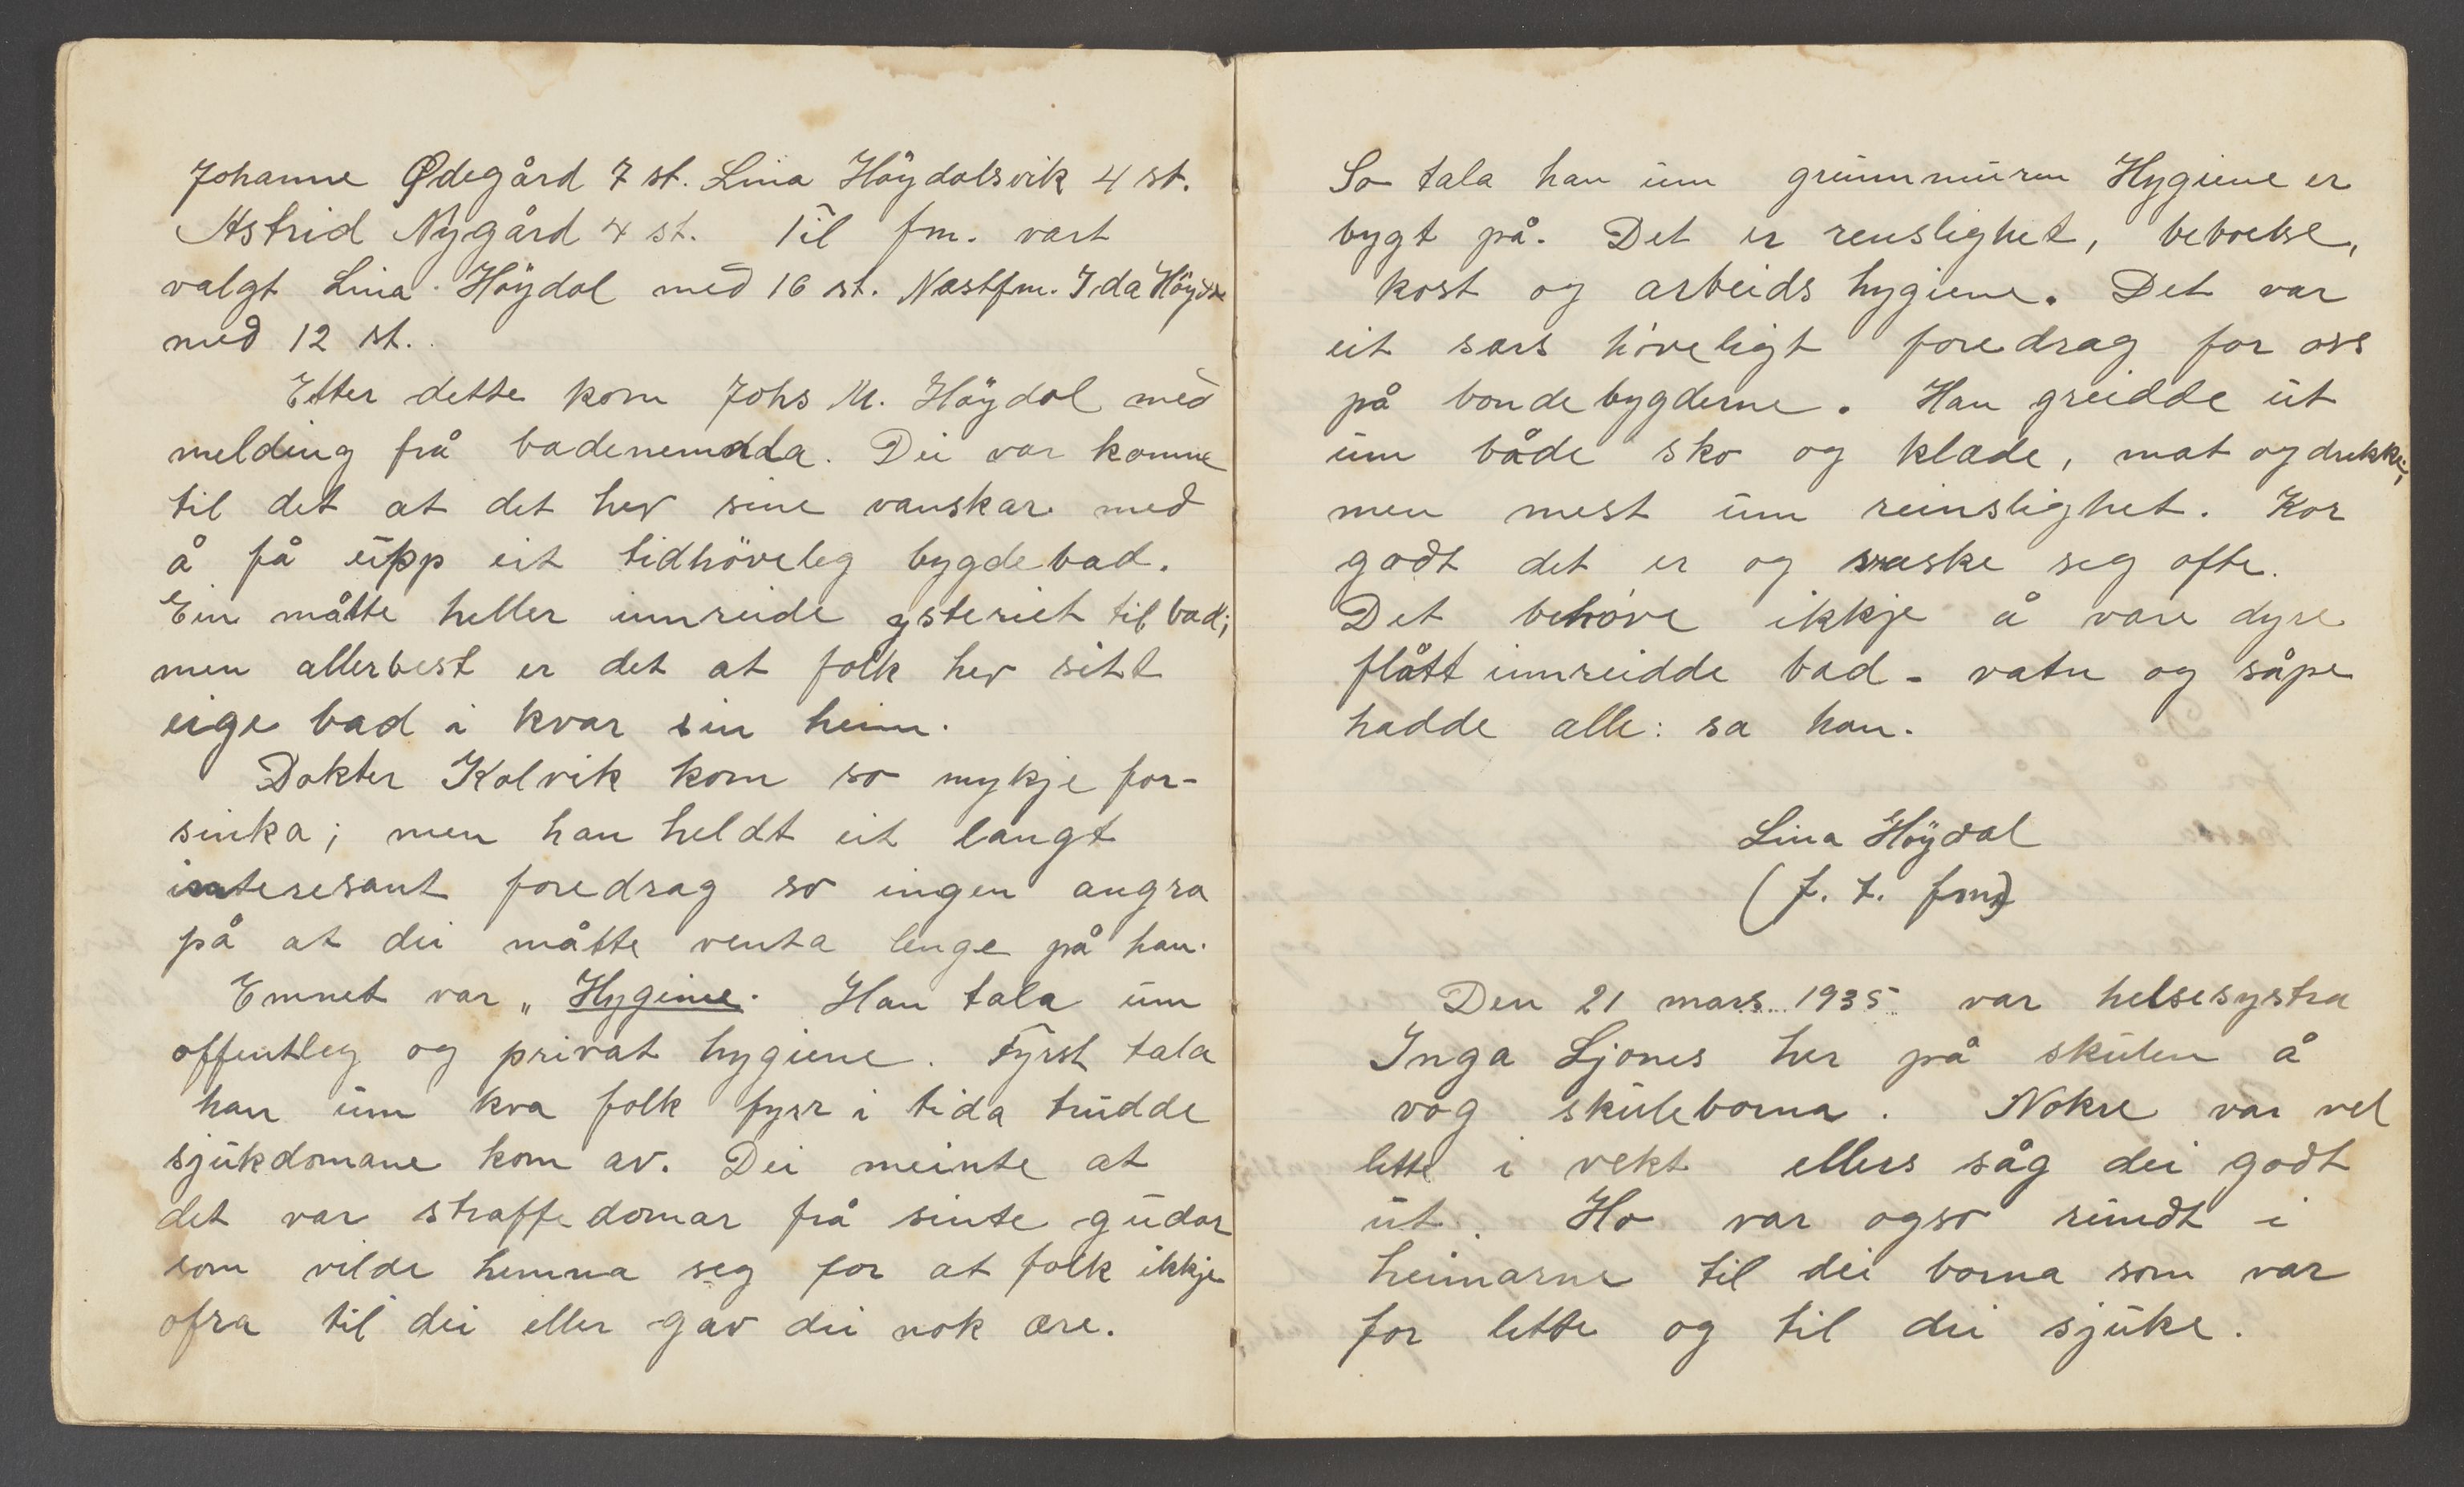 Johanne Ødegård 7 st. Lina Höydalsvik 4 st.
Astrid Nygård 4 st. Til fm. vart
valgt Lina Höydal med 16 st. Næstfm. Ida Höydal
med 12 st.
Etter dette kom Johs M. Höydal med
melding frå badenemnda. Dei var komne
til det at det hev sine vanskar med
å få upp eit tidhöveleg bygdebad.
Ein måtte heller innreide ysteriet til bad;
men allerbest er det at folk hev sitt
eige bad i kvar sin heim.
Dokter Kolvik kom so mykje for-
sinka; men han heldt eit langt
interesant foredrag so ingen angra
på at dei måtte venta lenge på han.
Emnet var „ Hygiene. Han tala um
offentleg og privat hygiene. Fyrst tala
han um kva folk fyrr i tida trudde
sjukdomane kom av. Dei meinte at
det var straffedomar frå sinte gudar
som vilde hemna seg for at folk ikkje
ofra til dei eller gav dei nok ære.
So tala han um grunnmuren Hygiene er
bygt på. Det er renslighet, beboelse,
kost og arbeids hygiene. Det var
eit særs höveligt foredrag for oss
på bondebygderne. Han greidde ut
um både sko og klæde, mat og drikke;
men mest um reinslighet. Kor
godt det er og vaske seg ofte.
Det behöve ikkje å være dyre
flått innreidde bad - vatn og såpe
hadde alle: sa han.
Lina Höydal
(f. t. fm)
Den 21 mars 1935 var helsesystra
Inga Ljones her på skulen å
vog skuleborna. Nokre var vel
lette i vekt ellers såg dei godt
ut. Ho var ogso rundt i
heimarne til dei borna som var
for lette og til dei sjuke.